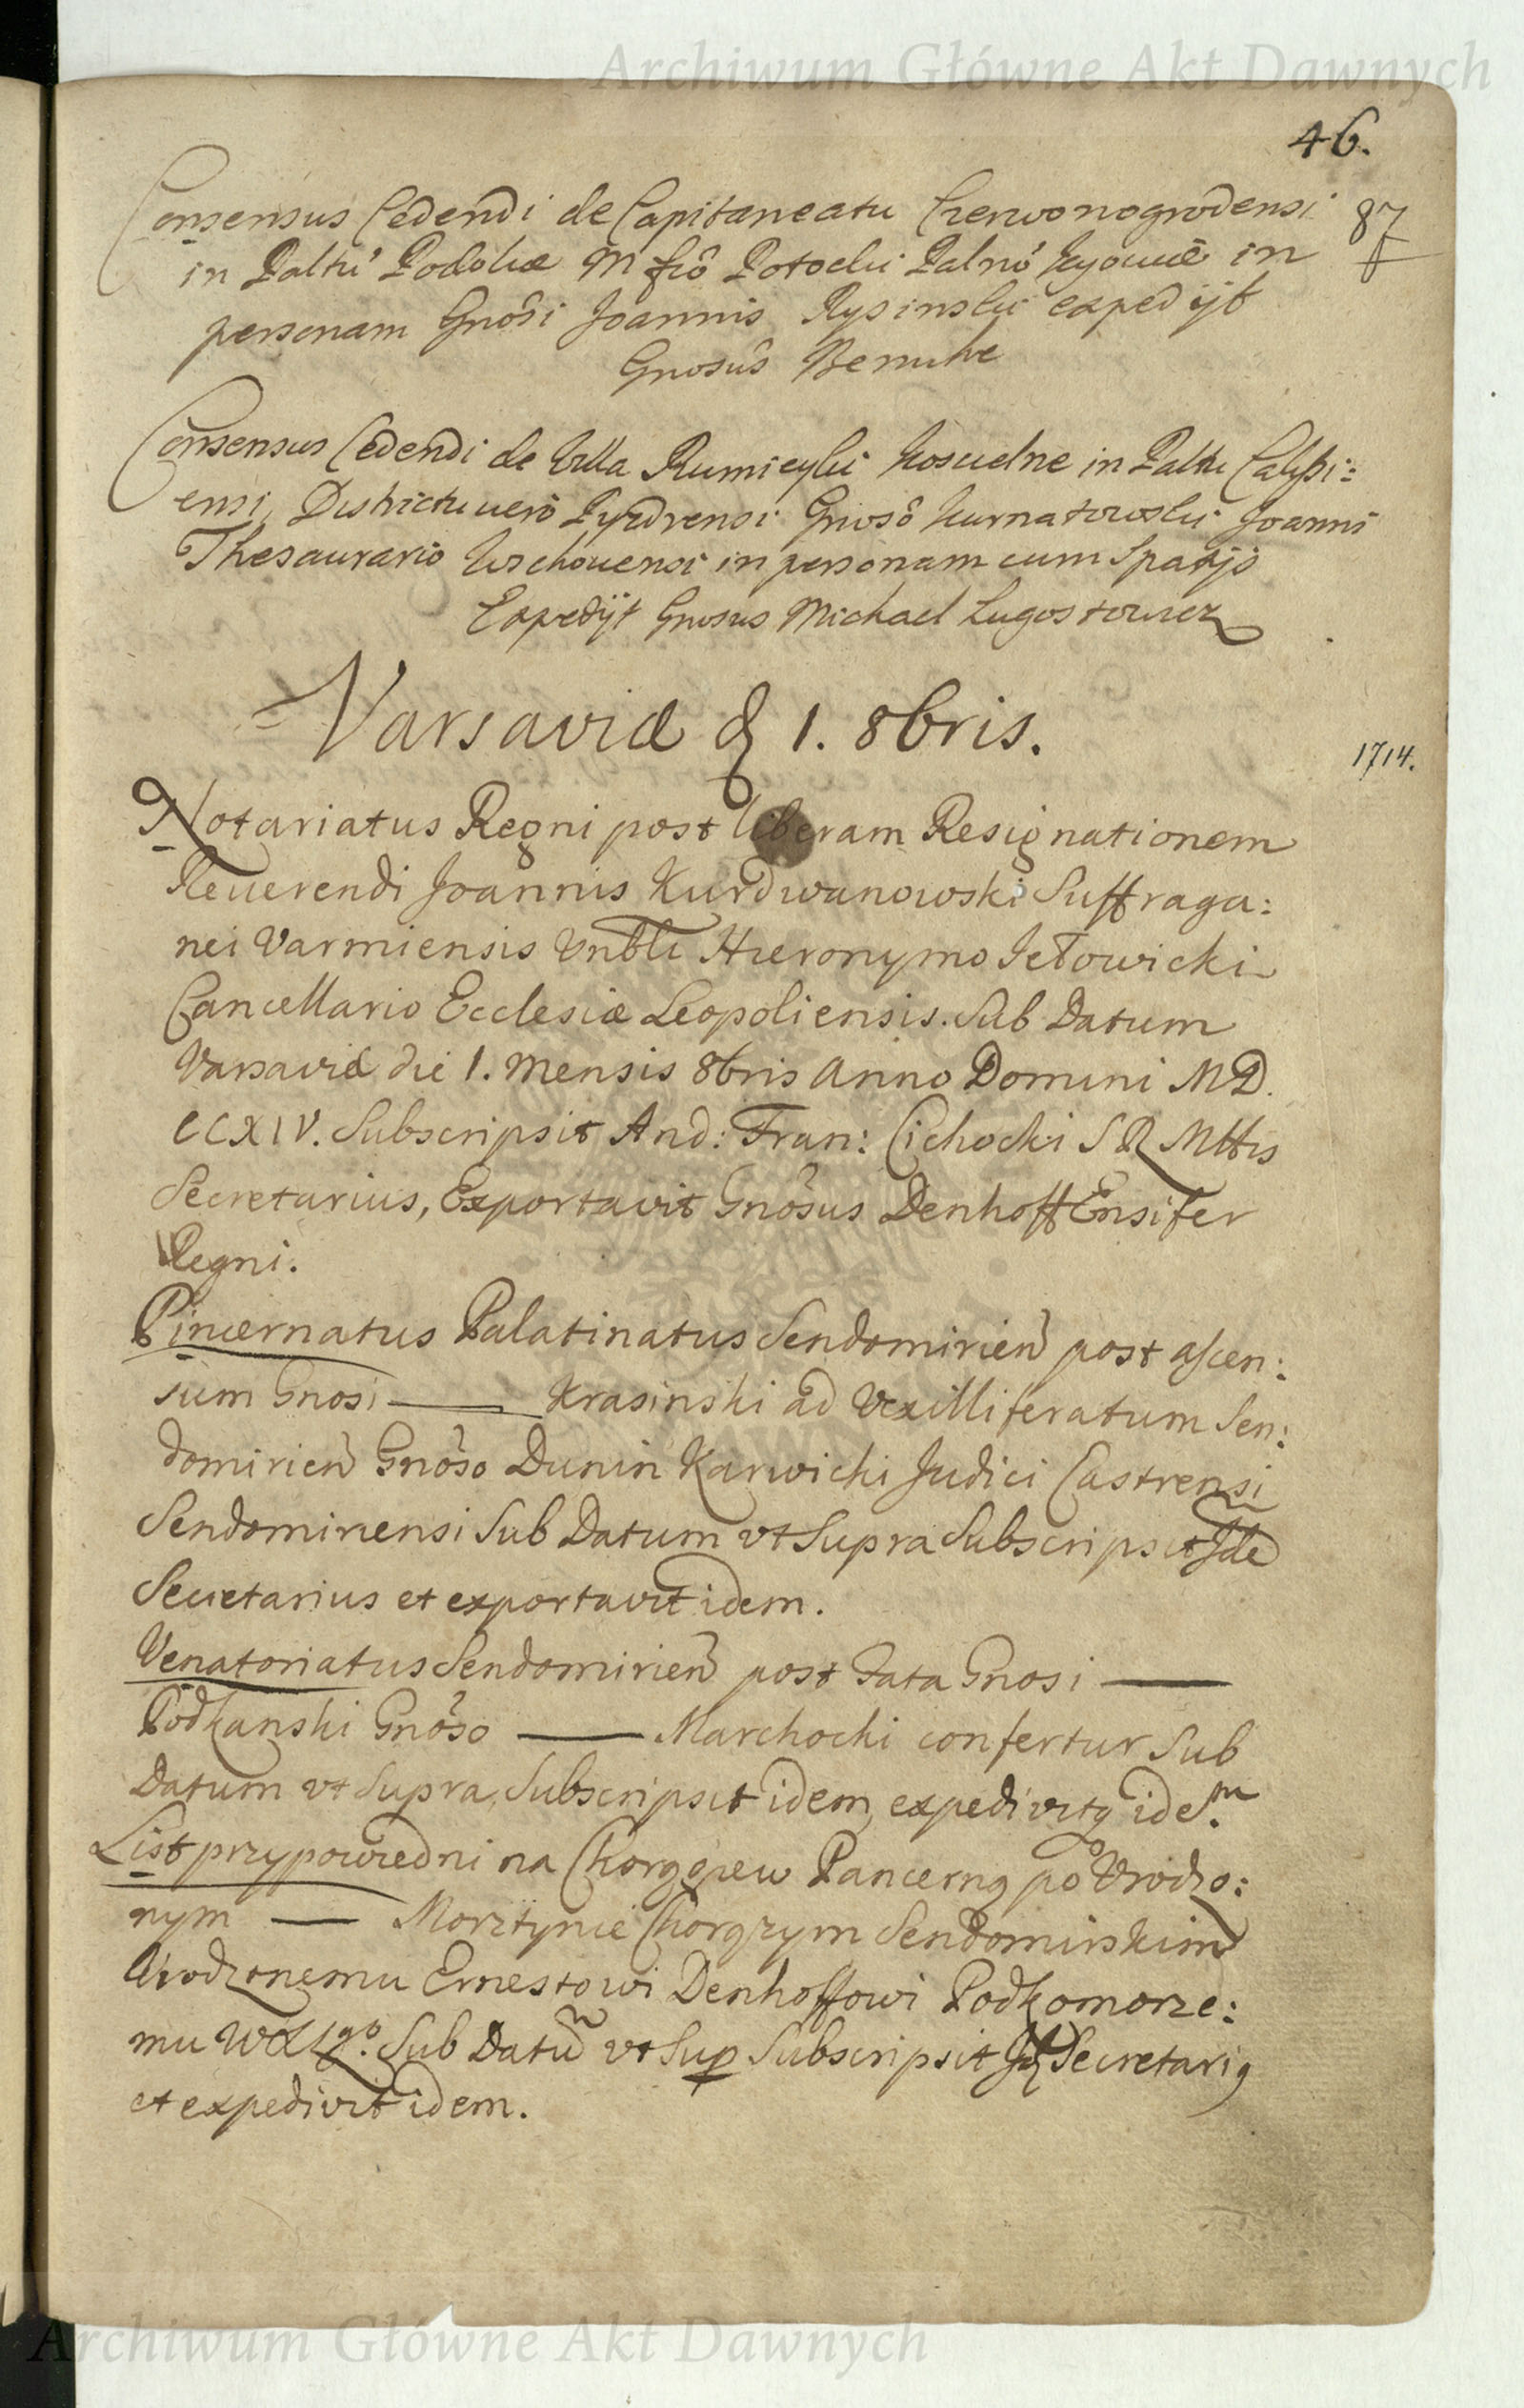 Archiwum Główne Akt Dawnych
46.
Consensus Cedendi de Capitaneatu Czerwonogrodensi
87
in Paltu Podoliæ M fco Potocki Palno Kyouiē in
personam Gnosi Joannis Rysinski expedijt
Gnosus Benuhe
Consensus Cedendi de Villa Rumieyki Koscielne in Paltu Calissi:
ensi, Districtu uero Pyzdrensi Gnoso Kurnatowski Joanni
Thesaurario Wschouensi in personam cum Spatijs
Expedijt Gnosus Michael Lugostowicz
Varsaviæ d 1. 8bris.
1714.
Notariatus Regni post liberam Resignationem
Reuerendi Joannis Kurdwanowski Suffraga:
nei Varmiensis Vnbli Hieronymo Jełowicki
Cancellario Ecclesiæ Leopoliensis. Sub Datum
Varsaviæ die 1. Mensis 8bris Anno Domini MD.
CCXIV. Subscripsit And: Fran: Cichocki S R Mttis
Secretarius, Exportavit Gnosus Denhoff Ensifer
Regni.
Pincernatus Palatinatus Sendomirien post ascen:
sum Gnosi — Krasinski ad Vexilliferatum Sen:
domirien Gnoso Dunin Karwicki Judici Castrensi
Sendomiriensi Sub Datum vt Supra Subscripsit Ide
Secretarius et exportavit idem.
Venatoriatus Sendomirien post Fata Gnosi —
Podkanski Gnoso — Marchocki confertur Sub
Datum vt Supra, Subscripsit idem, expedivitq ide.m
List przypowiedni na Chorągiew Pancerną po Vrodzo:
nym — Morztynie Chorązym Sendomirskim
Urodzonemu Ernestowi Denhoffowi Podkomorze:
mu WXLgo. Sub Datu vt Sup Subscripsit Id Secretari9
et expedivit idem.
Archiwum Główne Akt Dawnych